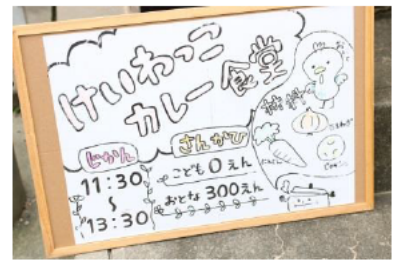 けいわっこ
カレー食堂
材料
じかん
11:30
〜
13:30
さんかひ
こども 0えん
おとな 300えん
にんじん